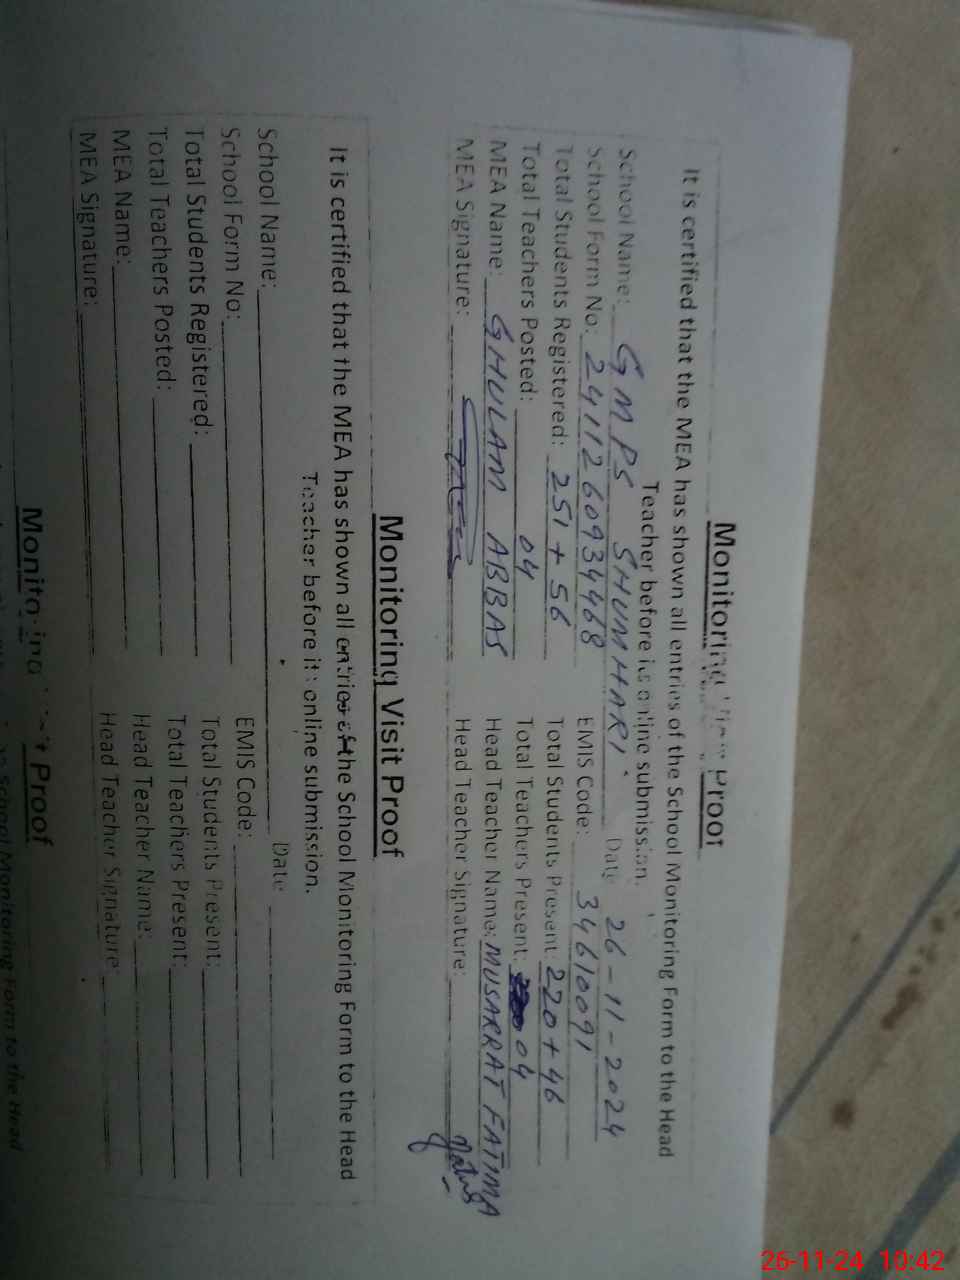 Monitoring Visit Proof
It is certified that the MEA has shown all entries of the School Monitoring Form to the Head
Teacher before its online submission.
School Name: GMPS SHUMHARI Date 26-11-2024
School Form No: 2411260934468 EMIS Code: 34610091
Total Students Registered: 251+56 Total Students Present: 220+46
Total Teachers Posted: 04 Total Teachers Present: 04
MEA Name: GHULAM ABBAS Head Teacher Name: MUSARRAT FATIMA
MEA Signature: Head Teacher Signature:
Monitoring Visit Proof
It is certified that the MEA has shown all entries of the School Monitoring Form to the Head
Teacher before its online submission.
School Name: Date
School Form No: EMIS Code:
Total Students Registered: Total Students Present:
Total Teachers Posted: Total Teachers Present:
MEA Name: Head Teacher Name:
MEA Signature: Head Teacher Signature:
Monitoring Visit Proof
School Monitoring Form to the Head
26-11-24 10:42